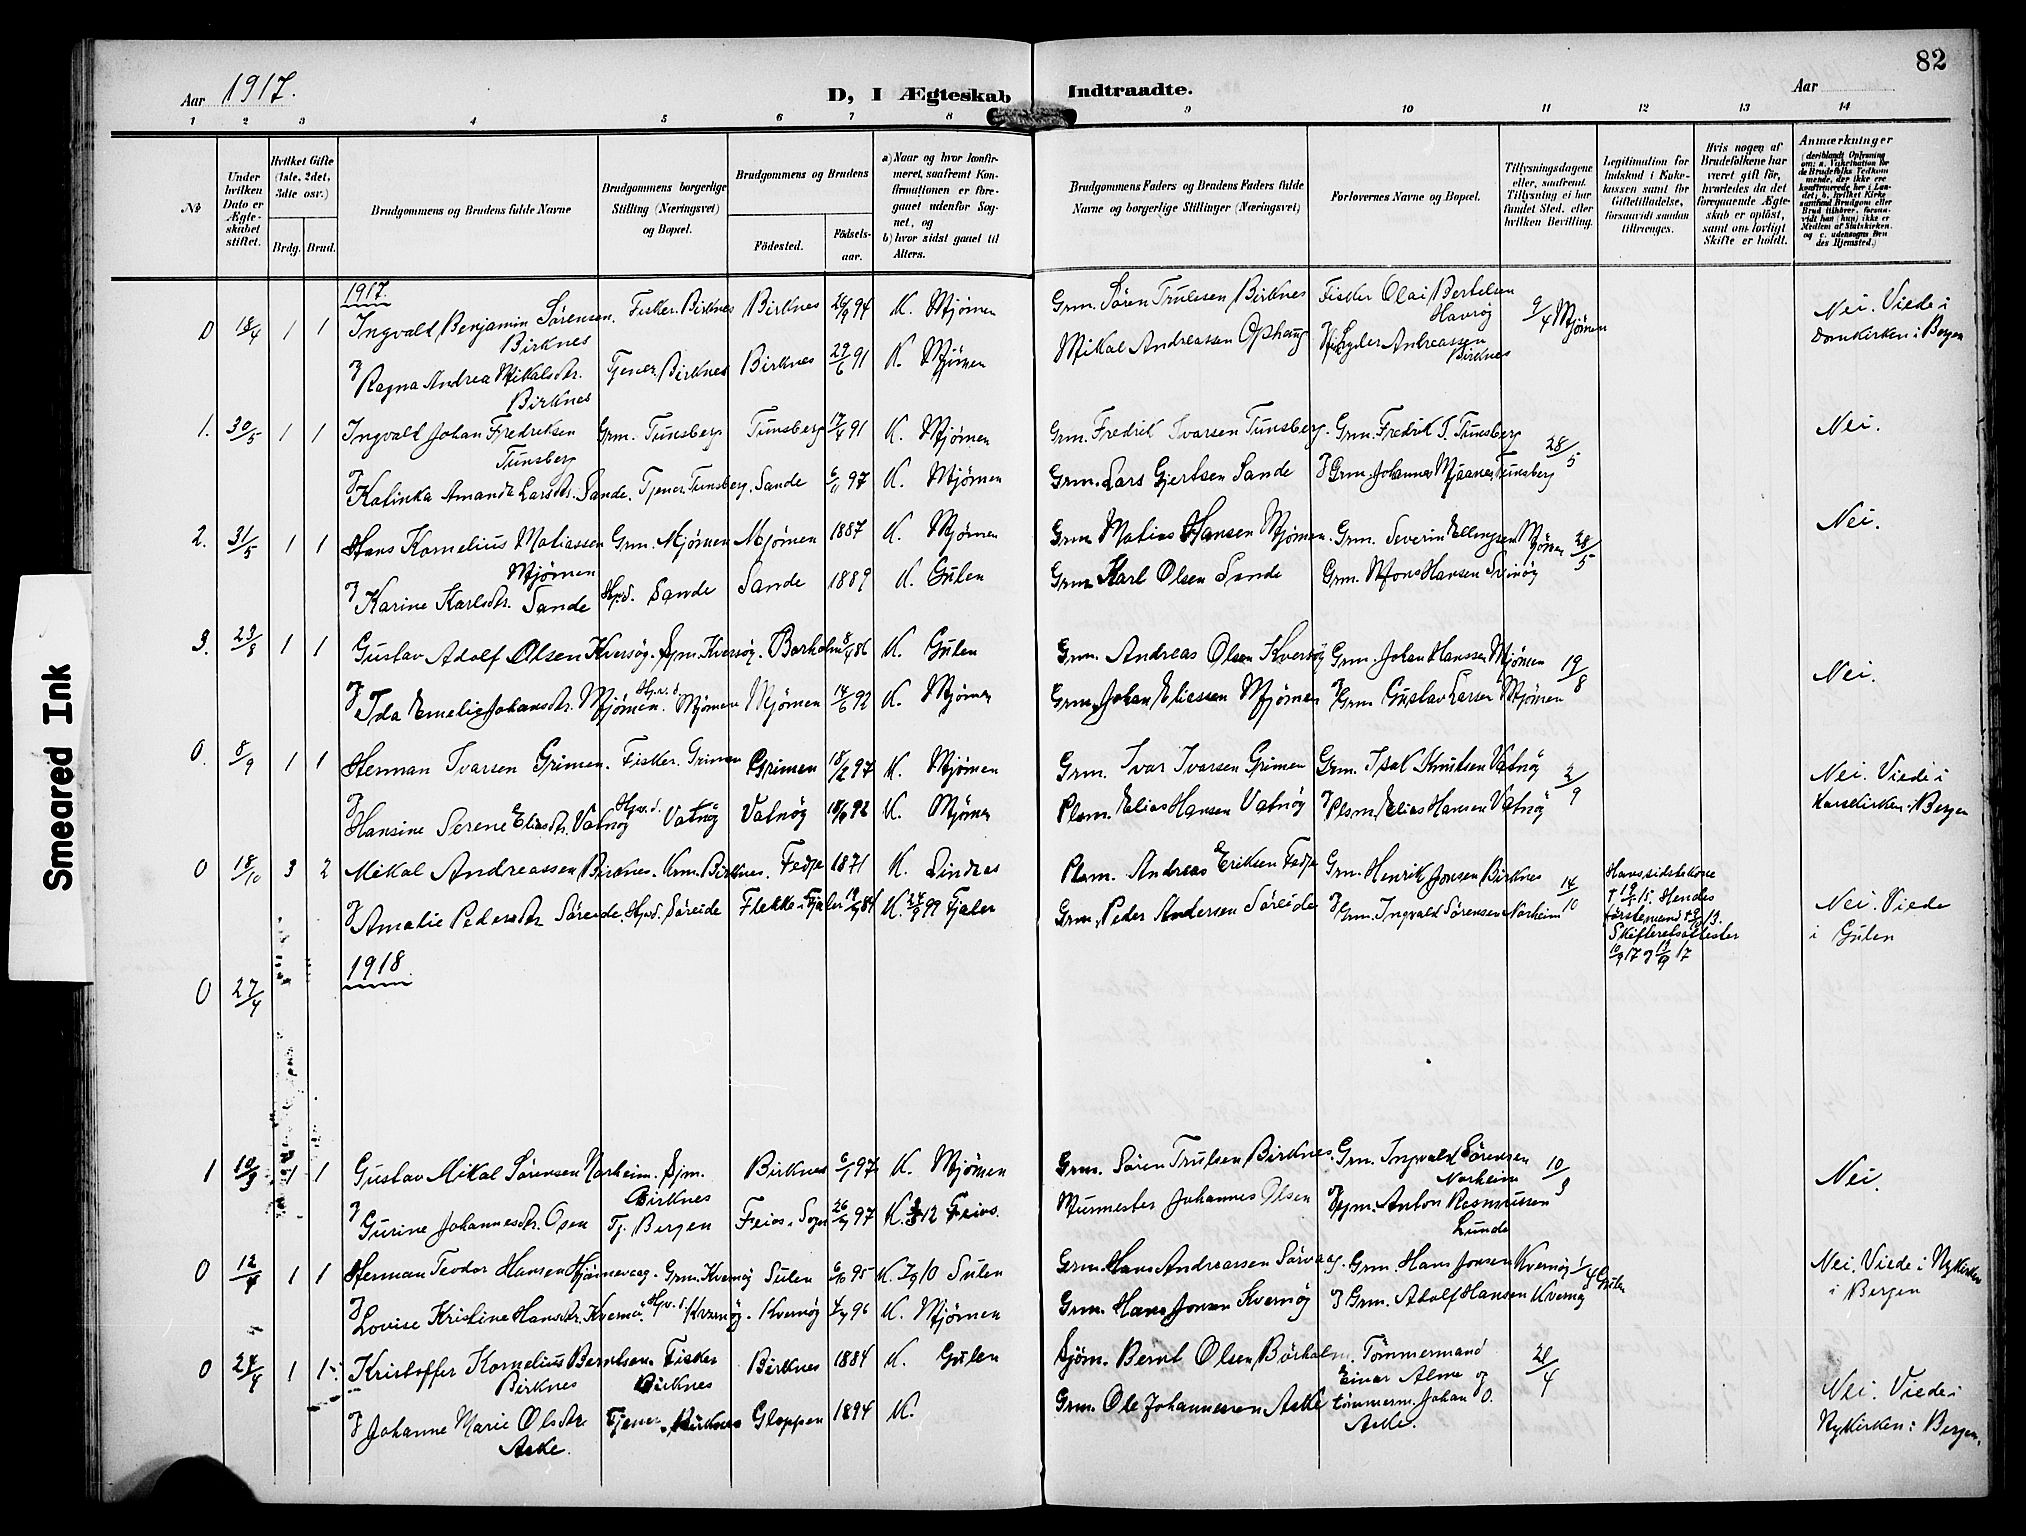 82
Aar 1917.
D, I Ægteskab Indtraadte.
Aar
1 2 3 4 5 6 7 8 9 10 11 12 13 14
No
Under hvilken Dato er Ægteskabet stiftet.
Hvilket Gifte (1ste, 2det, 3die osv.)
Brdg. Brud.
Brudgommens og Brudens fulde Navne
Brudgommens borgerlige Stilling (Næringsvei) og Bopæl.
Brudgommens og Brudens
Födested. Födselsaar.
a) Naar og hvor konfirmeret, saafremt Konfirmationen er foregaaet udenfor Sognet, og
b) hvor sidst gaaet til Alters.
Brudgommens Faders og Brudens Faders fulde Navne og borgerlige Stillinger (Næringsvei)
Forlovernes Navne og Bopæl.
Tillysningsdagene eller, saafremt Tillysning ei har fundet Sted, efter hvilken Bevilling.
Legitimation for Indskud i Enkekassen samt for Giftetilladelse, forsaavidt saadan tiltrænges.
Hvis nogen af Brudefolkene har været gift før, hvorledes da det foregaaende Ægteskab er opløst, samt om lovligt Skifte er holdt.
Anmærkninger
1917.
0 18/4 1 1 Ingvald Benjamin Sörensen Birknes Fisker. Birknes Birknes 26/9 94 K. Mjömen Grm. Sören Trulssen Birknes Fisker Olai Bertelsen Havrög 9/4 Mjömen Nei. Viede i Domkirken i Bergen
Ragna Andrea Mikalsdtr. Birknes Tjener. Birknes Birknes 29/6 91 K. Mjömen Mikal Andreassen Ophaug Andreassen Birknes
1. 30/5 1 1 Ingvald Johan Fredriksen Tunsberg Grm. Tunsberg Tunsberg 17/4 91 K. Mjömen Grm. Fredrik Ivarsen Tunsberg. Grm. Fredrik I. Tunsberg 28/5 Nei.
Katinka Amanda Larsdtr. Sande. Tjener Tunsberg. Sande 6/11 97 K. Mjömen Grm. Lars Gjertsen Sande Grm. Johannes Tunsberg
2. 31/5 1 1 Hans Kornelius Matiassen Mjömen Grm. Mjömen Mjömen 1887 K. Mjömen Grm Matias Hansen Mjömen. Grm. Severin Ellingsen Mjömen 28/5 Nei.
Karine Karlsdtr. Sande Sande Sande 1889 K. Gulen Grm Karl Olsen Sande Grm. Mons Hansen Svinög
3. 23/8 1 1 Gustav Adolf Olsen Kversög. Sjm. Kversög. Borholm 8/4 86 K. Gulen Grm. Andreas Olsen Kversög Grm. Johan Hanssen Mjömen 19/8 Nei.
Ida Emelie Johansdtr. Mjömen. Hpv.d. Mjömen Mjömen 14/6 92 K. Mjömen Grm. Johan Eliassen Mjömen Grm Gustav Larsen Mjömen
0. 8/9 1 1 Herman Ivarsen Grimen. Fisker. Grimen Grimen 18/2 97 K. Mjömen Grm. Ivar Ivarsen Grimen Grm. Isak Knutsen Vatnög 2/9 Nei. Viede i Korskirken i Bergen
Hansine Serene Eliasdtr. Vatnög Hpv.d. Vatnög Vatnög 92 K. Mjömen Plsm. Elias Hansen Vatnög Plsm. Elias Hansen Vatnög
0 18/10 3 2 Mikal Andreassen Birknes. Grm. Birknes. Fedje 1871 K. Lindaas Plsm. Andreas Eriksen Fedje Grm. Henrik Jonsen Birknes 14/10 Hans sidste kone Hendes förstemand Skifteretsattester Nei. Viede i Gulen
Amalie Pedersdtr Söreide. Hpv.d. Söreide Flekke i Fjaler 84 K. 99 Fjaler Grm. Peder Andersen Söreide Grm. Ingvald Sörensen Norheim
1918
0 27/4
1 10/3 1 1 Gustav Mikal Sörensen Norheim. Sjm. Birknes Birknes 6/1 97 K. Mjömen Grm. Sören Trulsen Birknes. Grm. Ingvald Sörensen Norheim 10/3 Nei.
Gurine Johannesdtr. Osen Tj. Bergen Feios i Sogn 26/9 97 K. 12 Feios. Murmester Johannes Olsen Sjm. Anton Rasmussen Lunde
0 12/4 1 1 Herman Teodor Hansen Grm. Kvernög Sulen 6/10 95 K. 10 Sulen Grm. Hans Andreassen Sörvaag. Grm. Hans Jonsen Kvernög 1/4 Gulen Nei. Viede i Nykirken i Bergen
Lovise Kristine Hansdtr. Kvernö. Hpv.d. Kvernög. Kvernög 96 K. Mjömen Grm. Hans Jonsen Kvernög Grm. Adolf Hansen Kvernög
0 24/4 1 1 Kristoffer Kornelius Berntsen Birknes Fisker Birknes Birknes 1884 K. Gulen Sjöm. Bernt Olsen Börholm. Tömmermand Einar Alme og 21/4 Nei. Viede i Nykirken i Bergen.
Johanne Marie Olsdtr Aske. Tjener. Birknes Gloppen 1894 K. Grm. Ole Johannessen Aske tömmerm. Johan O. Aske.
Smeared Ink